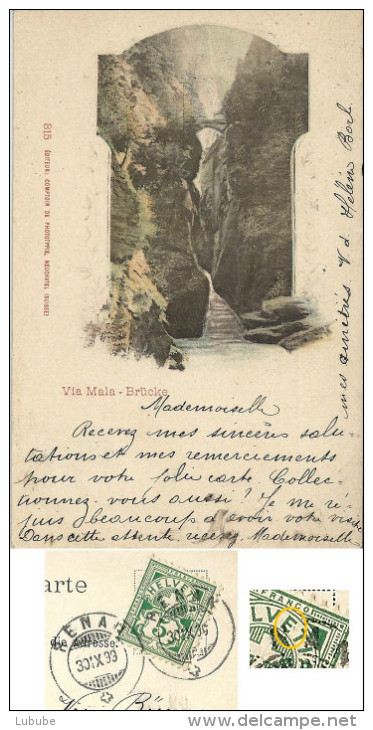 815 ÉDITEUR: COMPTOIR DE PHOTOTYPIE, NEUCHATEL (SUISSE)
Via Mala - Brücke
Mademoiselle
Recevez mes sincères salu-
tations et mes remerciements
pour votre jolie carte. Collec-
tionnez-vous aussi? Je me ré-
jouis beaucoup d'avoir votre visite
Dans cette attente recevez Mademoiselle
mes amitiés
Hélène
arte
Adresse.
30.IX.99
FRANCO
HELVETIA
5
30.IX.99
FRANCO
HELVE
Lubube
www.delcampe.net